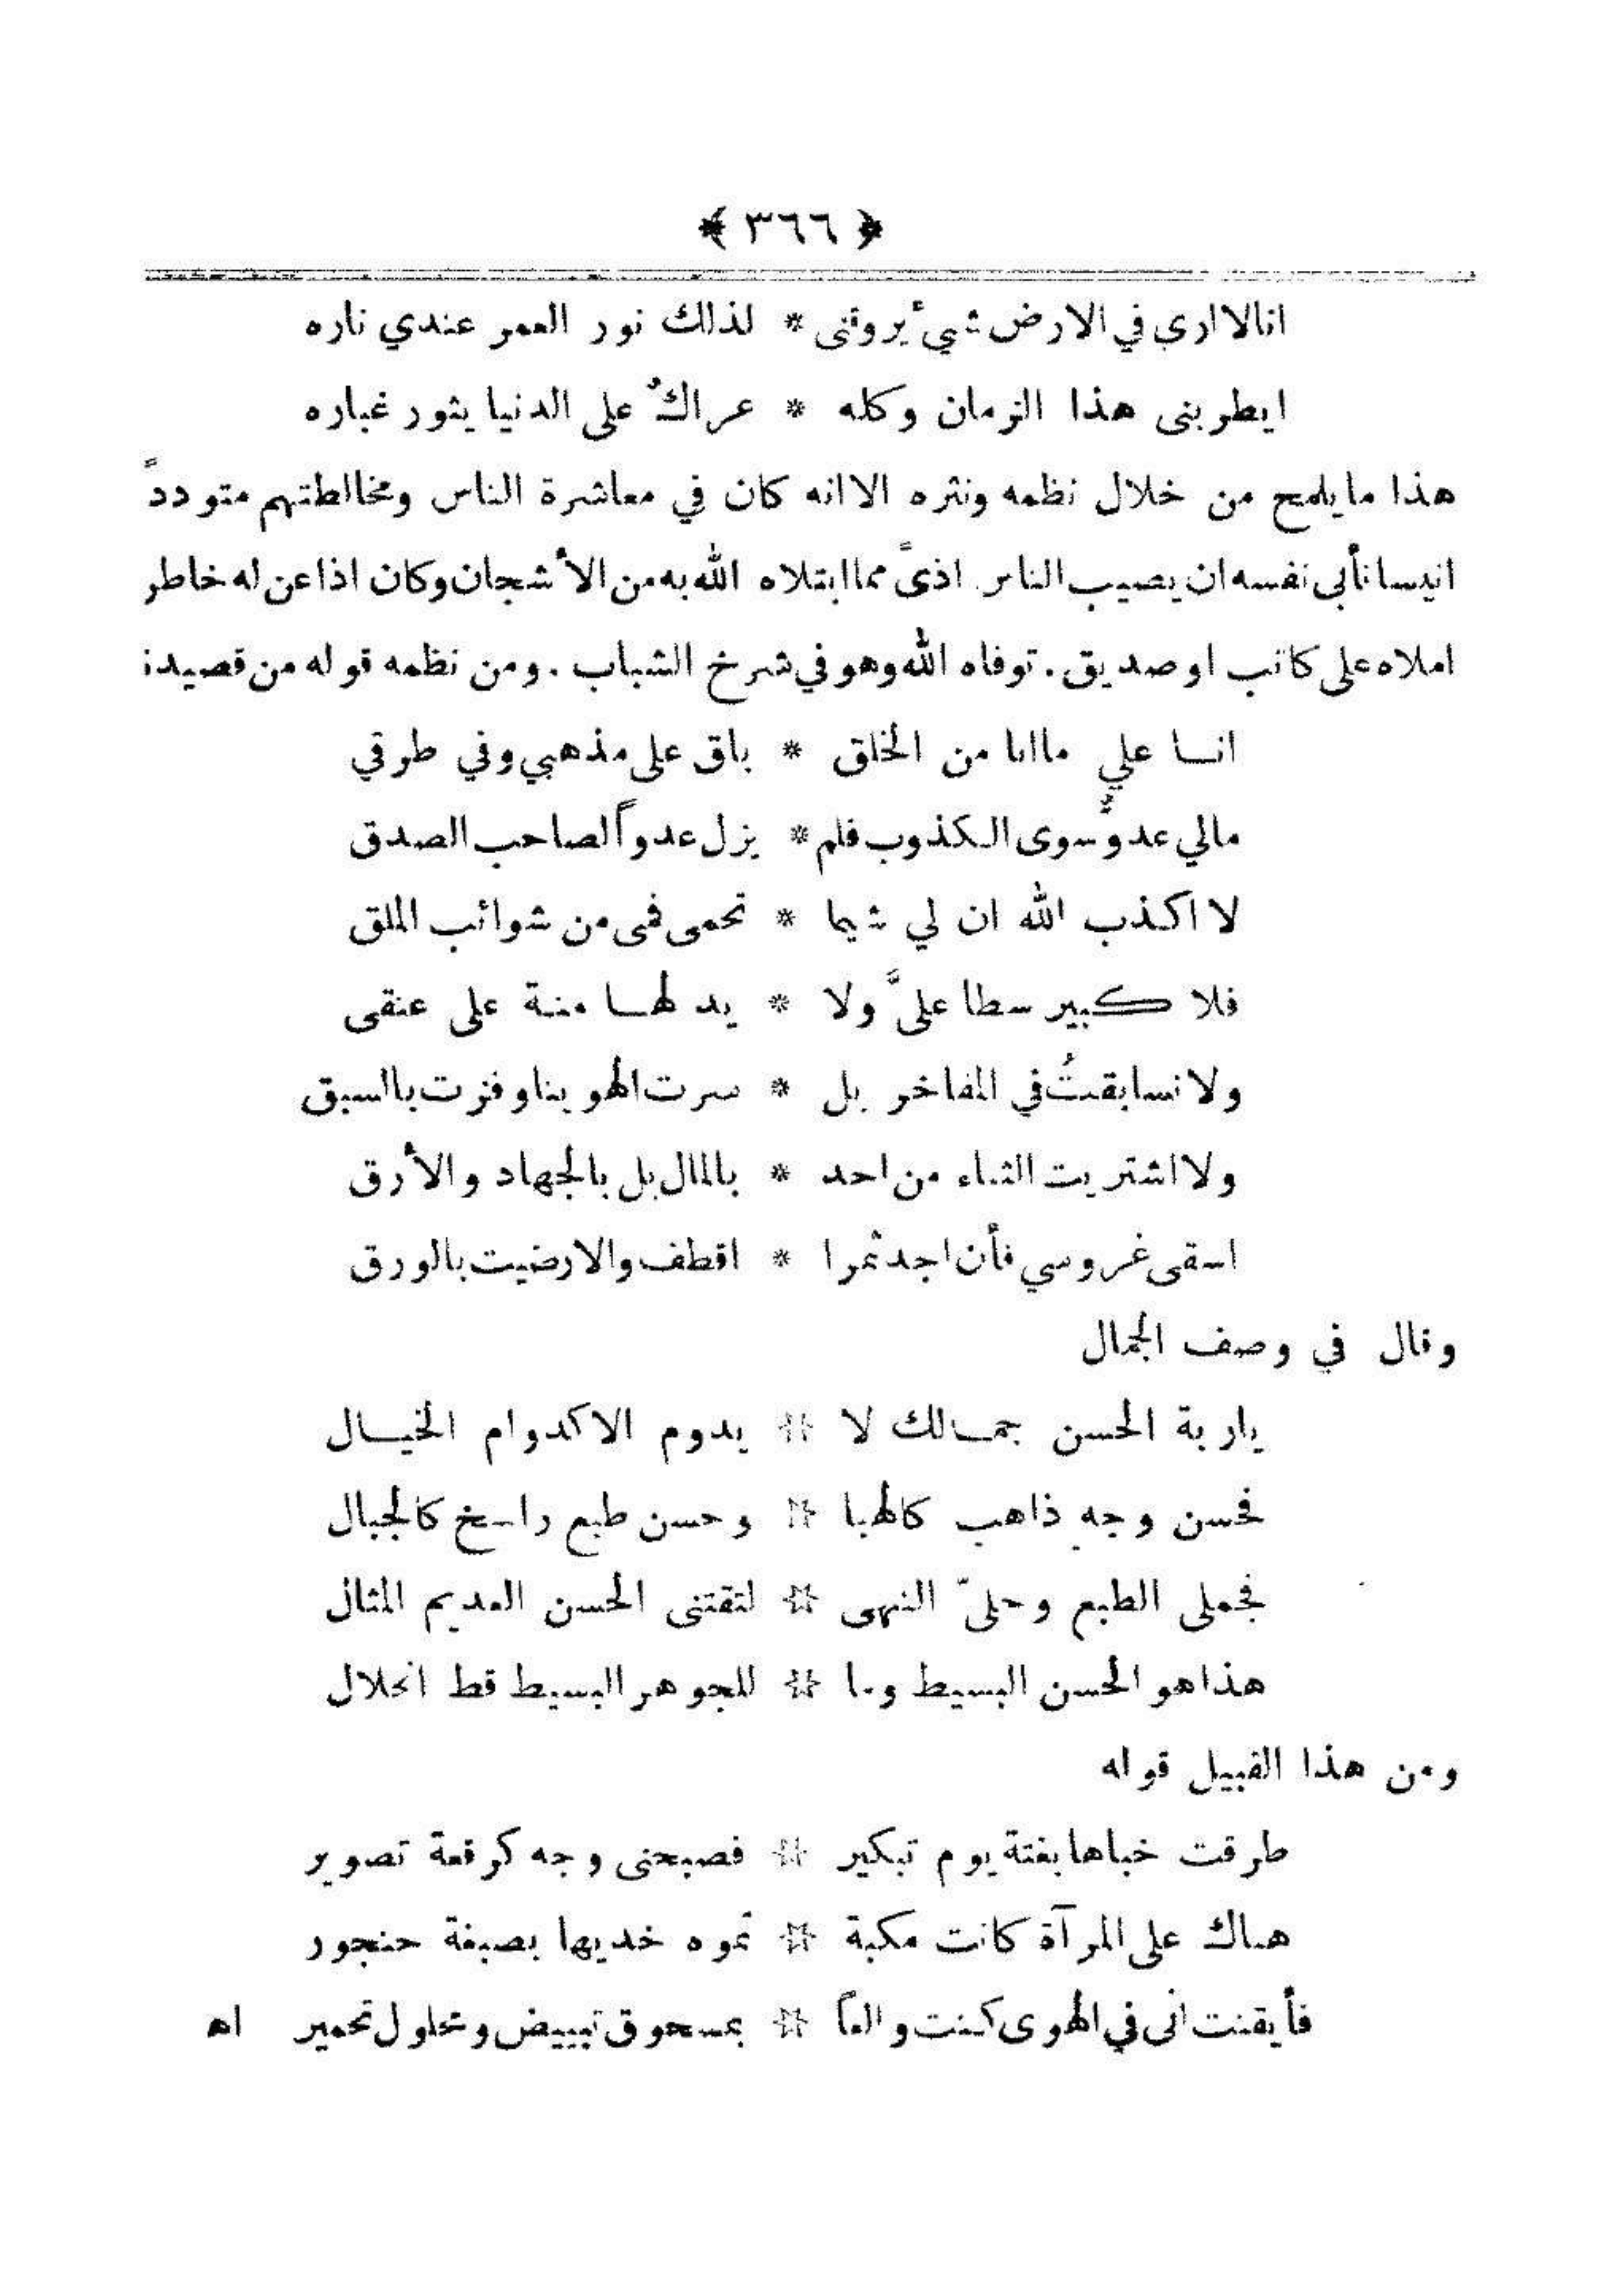 ﴿ ٣٦٦ ﴾
انا لا اري في الارض شيءٌ يروقنى * لذلك نور العمر عندي ناره
ايطربنى هذا الزمان وكله * عراكٌ على الدنيا يثور غباره
هذا ما يلمح من خلال نظمه ونثره الا انه كان في معاشرة الناس ومخالطتهم متودداً
انيسا تأبى نفسه ان يصيب الناس اذىً مما ابتلاه الله به من الأشجان وكان اذا عن له خاطر
املاه على كاتب او صديق. توفاه الله وهو في شرخ الشباب. ومن نظمه قوله من قصيدة
انا علي ما انا من الخلق * باق على مذهبي وفي طرقي
مالي عدوٌّ سوى الكذوب فلم * يزل عدواً لصاحب الصدق
لا اكذب الله ان لي شيما * تحمى فمى من شوائب الملق
فلا كبير سطا علىَّ ولا * يد لها منة على عنقى
ولا تسابقتُ في المفاخر بل * سرت الهوينا وفزت بالسبق
ولا اشتريت الثناء من احد * بالمال بل بالجهاد والأرق
اسقى غروسي فأن اجد ثمرا * اقطف والا رضيت بالورق
وقال في وصف الجمال
يا ربة الحسن جمالك لا * يدوم الا كدوام الخيال
فحسن وجهٍ ذاهب كالهبا * وحسن طبع راسخ كالجبال
فجملى الطبع وحلىّ النهى * لتقتنى الحسن العديم المثال
هذا هو الحسن البسيط وما * للجوهر البسيط قط انحلال
ومن هذا القبيل قوله
طرقت خباها بغتة يوم تبكير * فصبحنى وجه كرقعة تصوير
هناك على المرآة كانت مكبة * تموه خديها بصبغة حنجور
فأيقنت انى في الهوى كنت والعاً * بمسحوق تبييض ومحلول تحمير اه